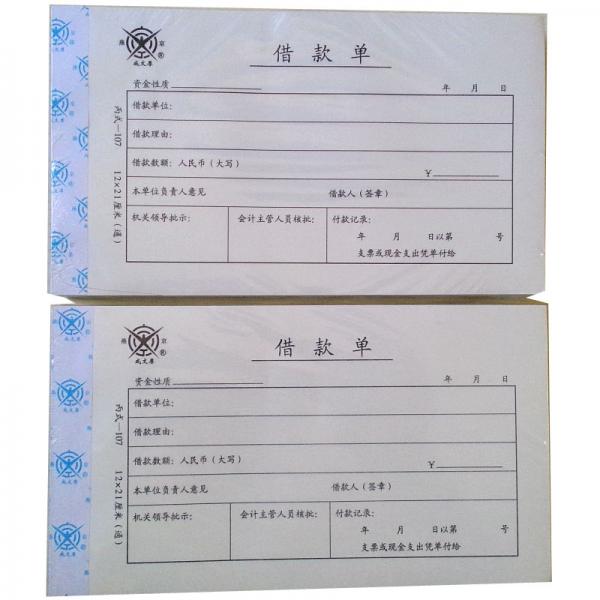 燕 京
®
成文厚
借款单
资金性质 年 月 日
借款单位:
借款理由:
借款数额: 人民币(大写) ¥
本单位负责人意见 借款人(签章)
机关领导批示: 会计主管人员核批: 付款记录:
年 月 日以第 号
支票或现金支出凭单付给
丙式—107 12×21厘米(通)
燕 京
®
成文厚
借款单
资金性质 年 月 日
借款单位:
借款理由:
借款数额: 人民币(大写) ¥
本单位负责人意见 借款人(签章)
机关领导批示: 会计主管人员核批: 付款记录:
年 月 日以第 号
支票或现金支出凭单付给
丙式—107 12×21厘米(通)